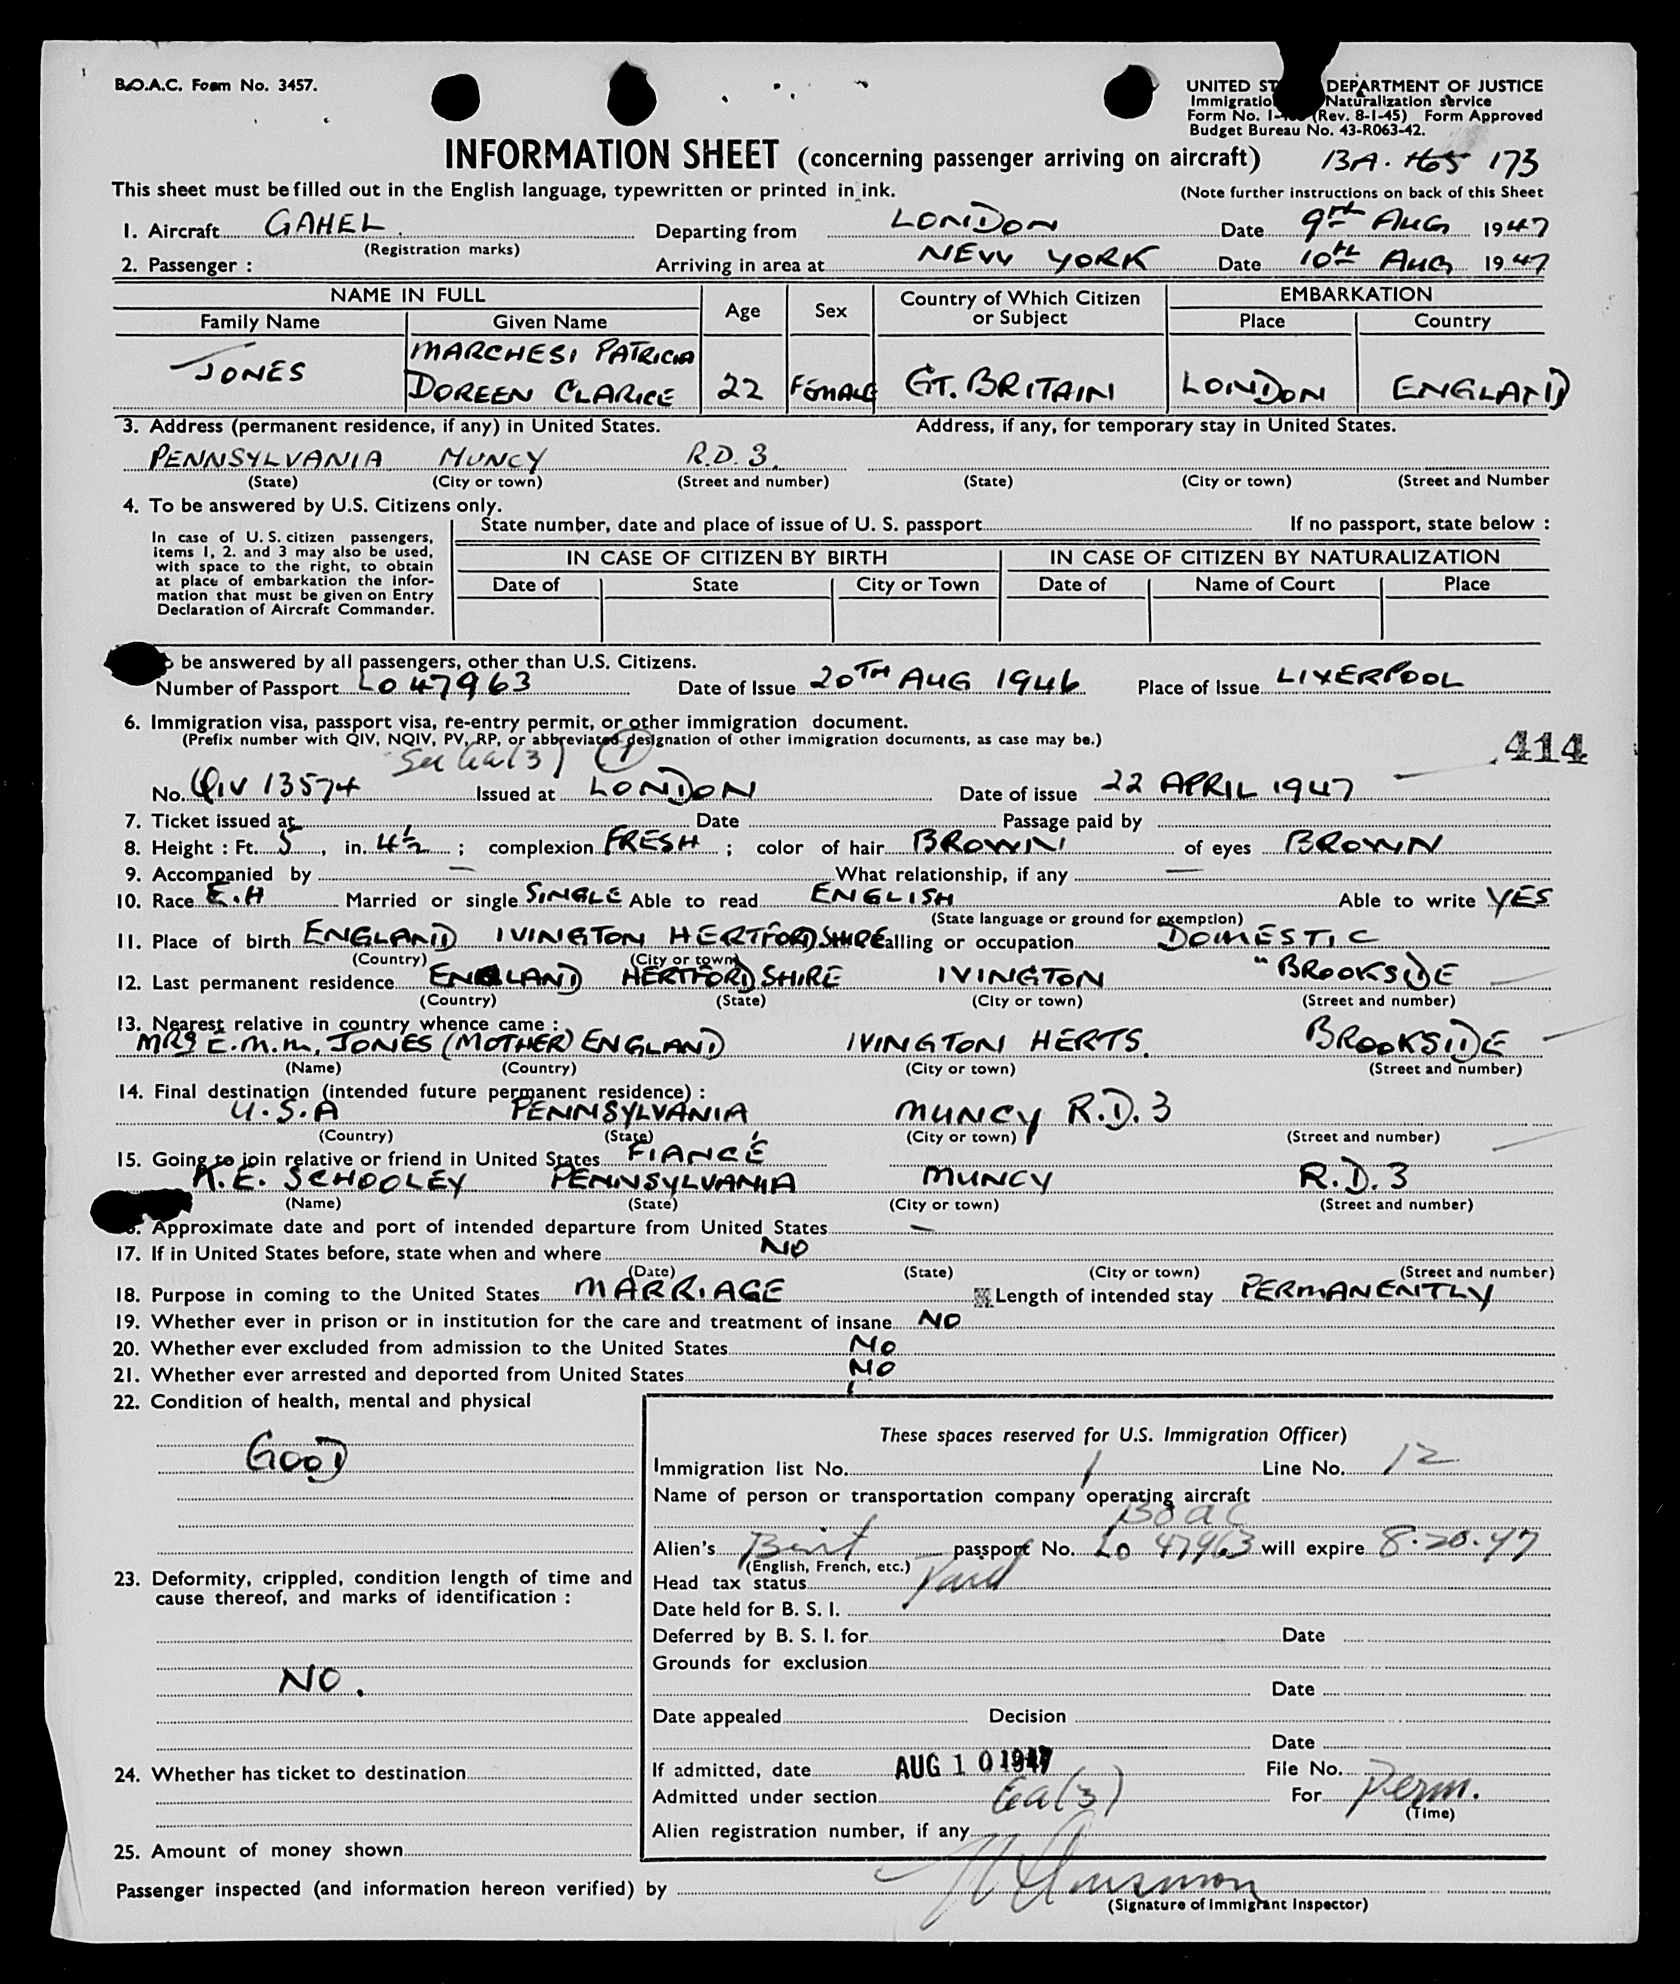 B.O.A.C. Form No. 3457.
UNITED ST DEPARTMENT OF JUSTICE
Immigratio Naturalization service
Form No. I- (Rev. 8-1-45) Form Approved
Budget Bureau No. 43-R063-42.
INFORMATION SHEET (concerning passenger arriving on aircraft) BA. 465 173
This sheet must be filled out in the English language, typewritten or printed in ink. (Note further instructions on back of this Sheet
1. Aircraft GAHEL. Departing from LONDON Date 9th AUG 1947
(Registration marks)
2. Passenger : Arriving in area at NEW YORK Date 10th AUG 1947
NAME IN FULL Age Sex Country of Which Citizen or Subject EMBARKATION
Family Name Given Name Place Country
MARCHESI PATRICIA
JONES DOREEN CLARICE 22 FEMALE GT. BRITAIN LONDON ENGLAND
3. Address (permanent residence, if any) in United States. Address, if any, for temporary stay in United States.
PENNSYLVANIA MUNCY R.D. 3.
(State) (City or town) (Street and number) (State) (City or town) (Street and Number
4. To be answered by U.S. Citizens only.
State number, date and place of issue of U. S. passport If no passport, state below :
In case of U. S. citizen passengers,
items 1, 2. and 3 may also be used,
with space to the right, to obtain
at place of embarkation the infor-
mation that must be given on Entry
Declaration of Aircraft Commander.
IN CASE OF CITIZEN BY BIRTH IN CASE OF CITIZEN BY NATURALIZATION
Date of State City or Town Date of Name of Court Place
be answered by all passengers, other than U.S. Citizens.
Number of Passport LO 47963 Date of Issue 20TH AUG 1946 Place of Issue LIVERPOOL
6. Immigration visa, passport visa, re-entry permit, or other immigration document.
(Prefix number with QIV, NQIV, PV, RP, or abbreviated designation of other immigration documents, as case may be.)
414
Sec 6a(3) 1
No. QIV 13574 Issued at LONDON Date of issue 22 APRIL 1947
7. Ticket issued at Date Passage paid by
8. Height : Ft. 5, in. 4½ ; complexion FRESH ; color of hair BROWN of eyes BROWN
9. Accompanied by — What relationship, if any —
10. Race E.H Married or single SINGLE Able to read ENGLISH Able to write YES
(State language or ground for exemption)
11. Place of birth ENGLAND IVINGTON HERTFORDSHIRE alling or occupation DOMESTIC
(Country) (City or town)
12. Last permanent residence ENGLAND HERTFORDSHIRE IVINGTON "BROOKSIDE
(Country) (State) (City or town) (Street and number)
13. Nearest relative in country whence came :
MRS E.M.M. JONES (MOTHER) ENGLAND IVINGTON HERTS. BROOKSIDE
(Name) (Country) (City or town) (Street and number)
14. Final destination (intended future permanent residence) :
U.S.A PENNSYLVANIA MUNCY R.D. 3
(Country) (State) (City or town) (Street and number)
15. Going to join relative or friend in United States FIANCÉ
K.E. SCHOOLEY PENNSYLVANIA MUNCY R.D. 3
(Name) (State) (City or town) (Street and number)
Approximate date and port of intended departure from United States —
17. If in United States before, state when and where NO
(Date) (State) (City or town) (Street and number)
18. Purpose in coming to the United States MARRIAGE Length of intended stay PERMANENTLY
19. Whether ever in prison or in institution for the care and treatment of insane NO
20. Whether ever excluded from admission to the United States NO
21. Whether ever arrested and deported from United States NO
22. Condition of health, mental and physical
GOOD
23. Deformity, crippled, condition length of time and
cause thereof, and marks of identification :
NO.
24. Whether has ticket to destination
25. Amount of money shown
These spaces reserved for U.S. Immigration Officer)
Immigration list No. 1 Line No. 12
Name of person or transportation company operating aircraft
BOAC
Alien's Brit passport No. Lo 47963 will expire 8.20.47
(English, French, etc.)
Head tax status Paid
Date held for B. S. I.
Deferred by B. S. I. for Date
Grounds for exclusion
Date
Date appealed Decision
Date
If admitted, date AUG 10 1947 File No.
Admitted under section 6a(3) For Perm.
(Time)
Alien registration number, if any
Passenger inspected (and information hereon verified) by
(Signature of Immigrant Inspector)